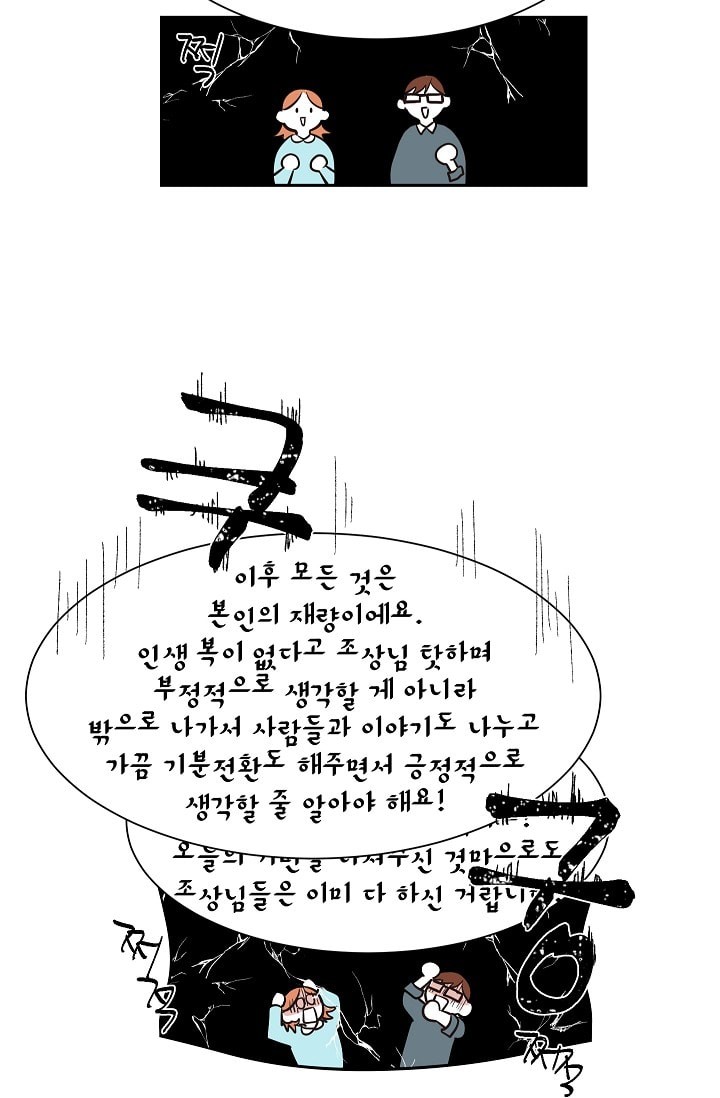 쩍
쿠
이후 모든 것은
본인의 재량이에요.
인생 복이 없다고 조상님 탓하며
부정적으로 생각할 게 아니라
밖으로 나가서 사람들과 이야기도 나누고
가끔 기분전환도 해주면서 긍정적으로
생각할 줄 알아야 해요!
쿵
것만으로도
조상님들은 이미 다 하신 거랍니
쩌
적
쩌적